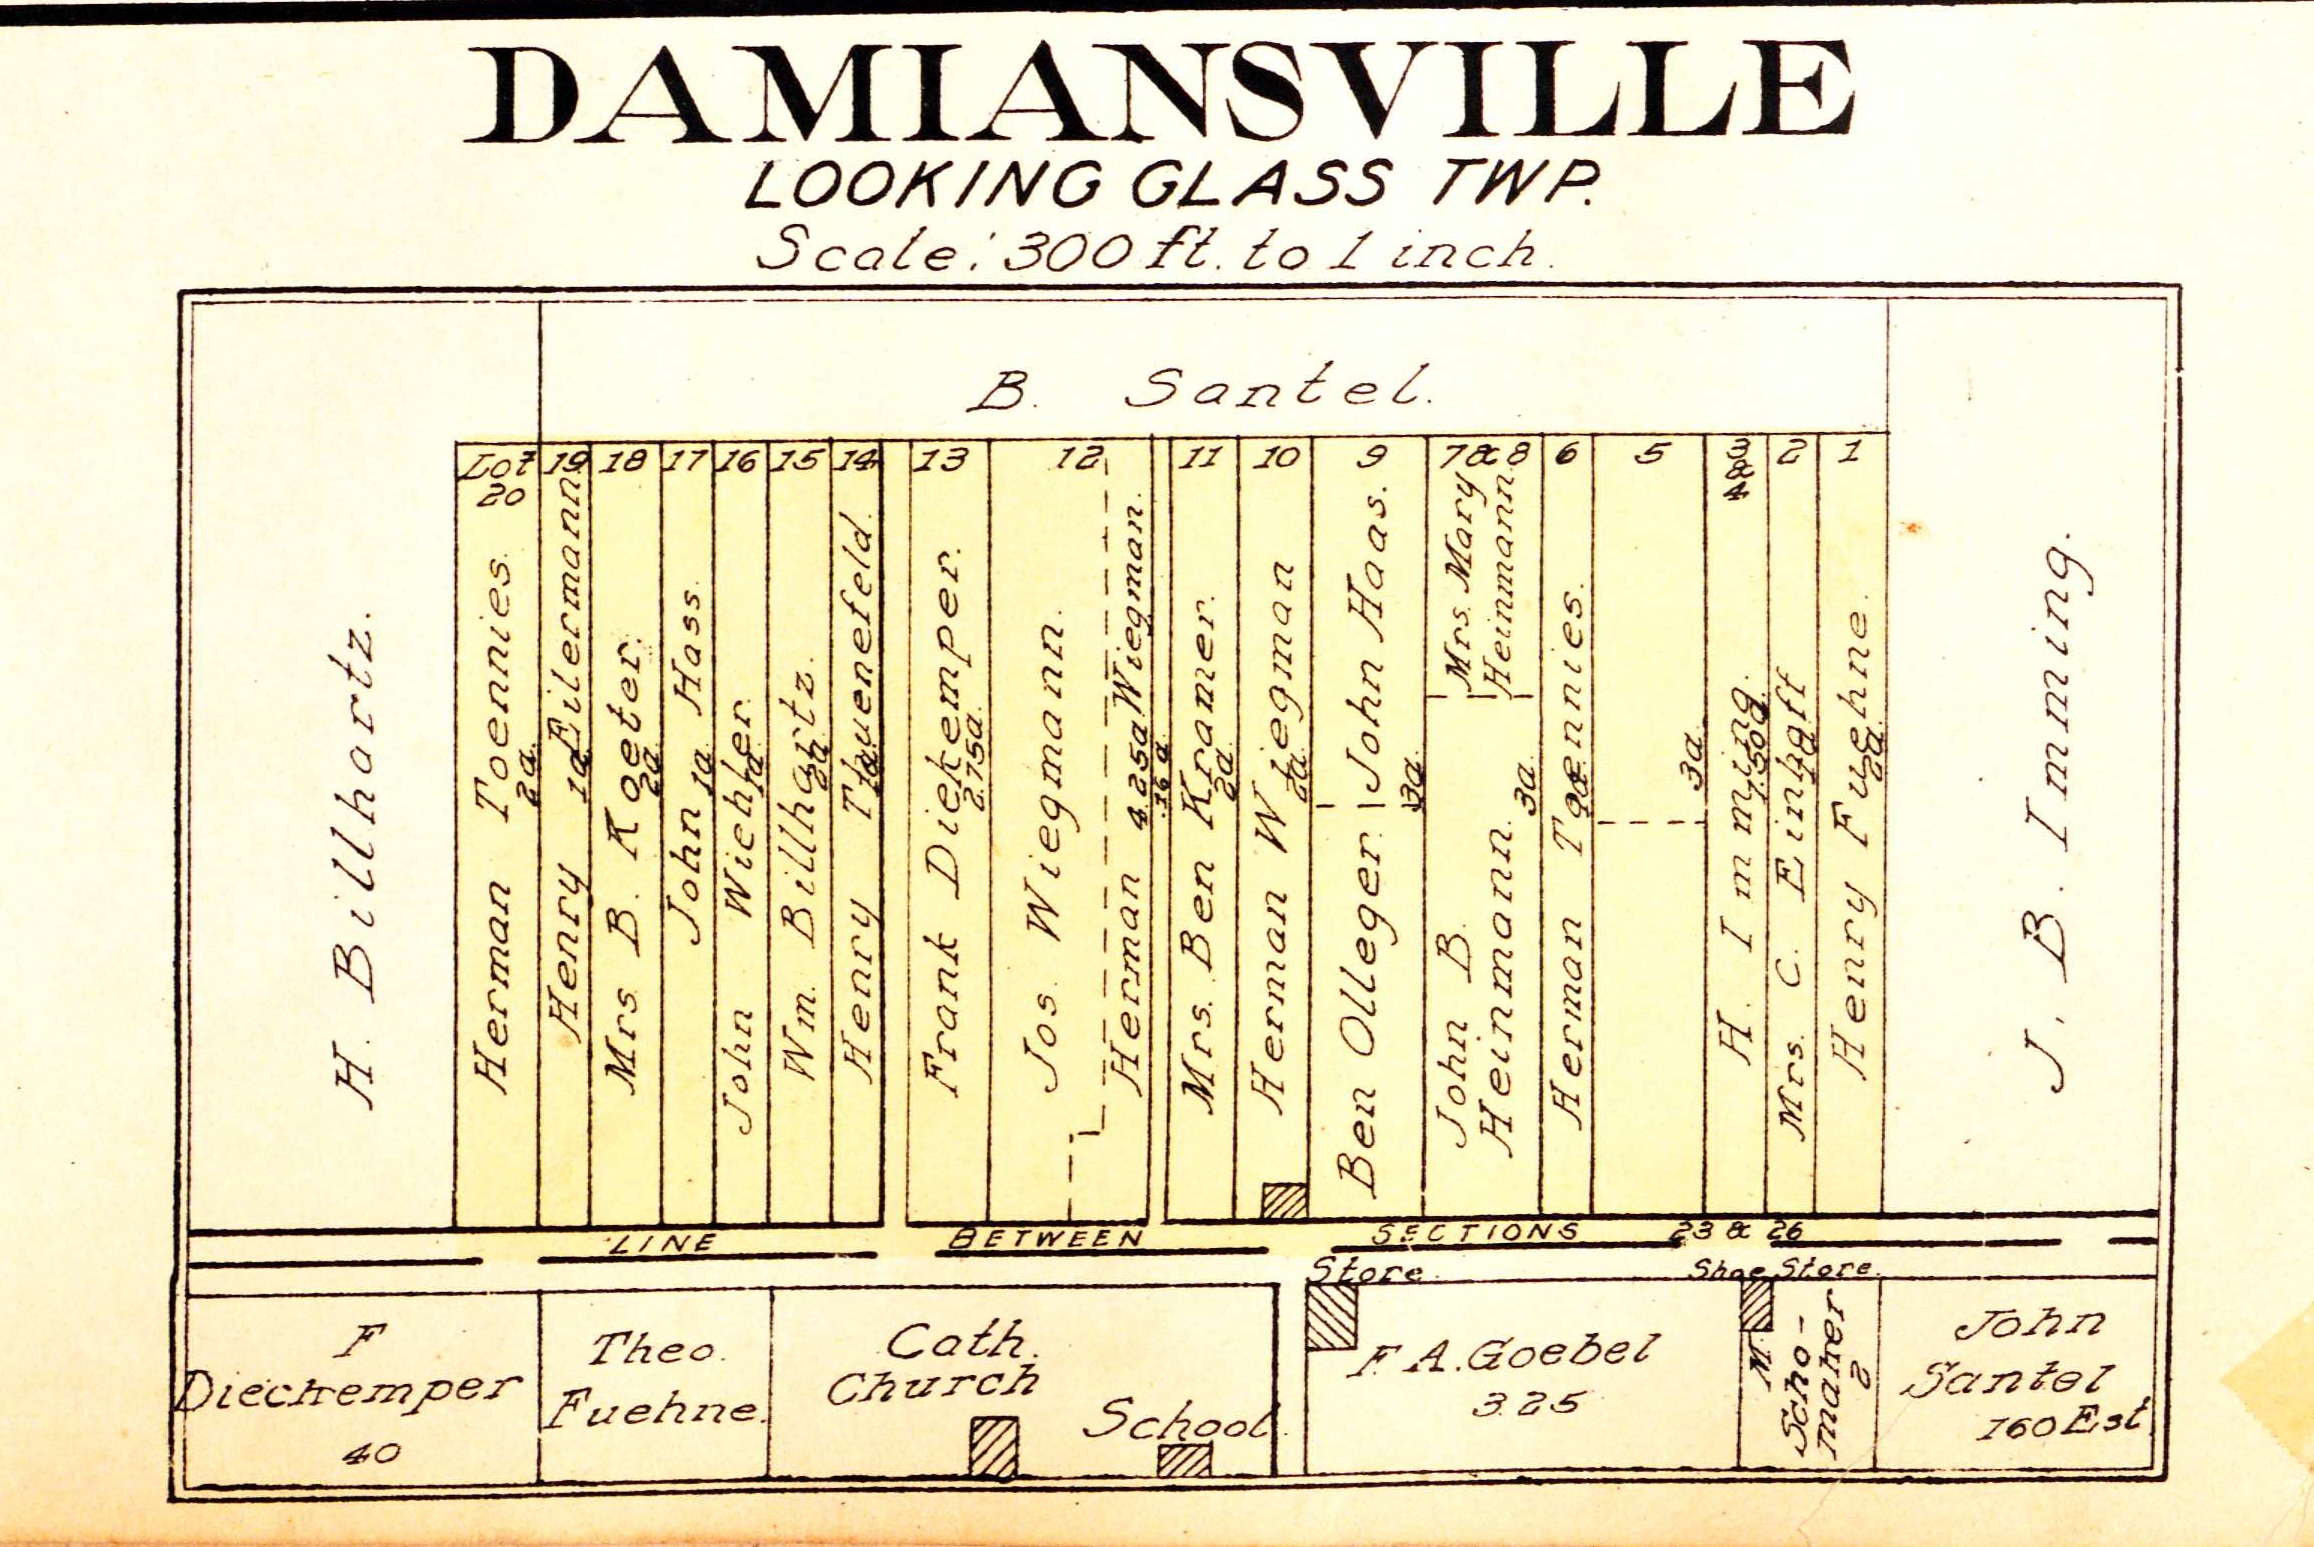 DAMIANSVILLE
LOOKING GLASS TWP.
Scale: 300 ft. to 1 inch.
B. Santel.
H. Billhartz.
Lot 20
Herman Toennies.
2a.
19
Henry Eilermann
1a
18
Mrs. B. Koeter.
2a
17
John Hass.
1a
16
John Wicher.
1a
15
Wm. Billhartz.
2a
14
Henry Thuenefeld.
13
Frank Diekemper.
2.75a
12
Jos. Wiegmann.
Herman Wiegman.
4.25a
.16 a
11
Mrs. Ben Kramer.
2a
10
Herman Wiegman
2a
9
John Haas.
Ben Olleger.
3a
7 & 8
Mrs. Mary
Heinmann.
John B.
Heinmann.
3a
6
Herman Toennies.
5
3a
3
&
4
H. Imming.
1.50a
2
Mrs. C. Einhaff
1
Henry Fuehne.
2a
J. B. Imming.
LINE BETWEEN SECTIONS 23 & 26
Store.
Shoe Store.
F
Dieckemper
40
Theo.
Fuehne.
Cath.
Church
School
F. A. Goebel
3.25
M.
Scho-
maker
2
John
Santel
160 Est